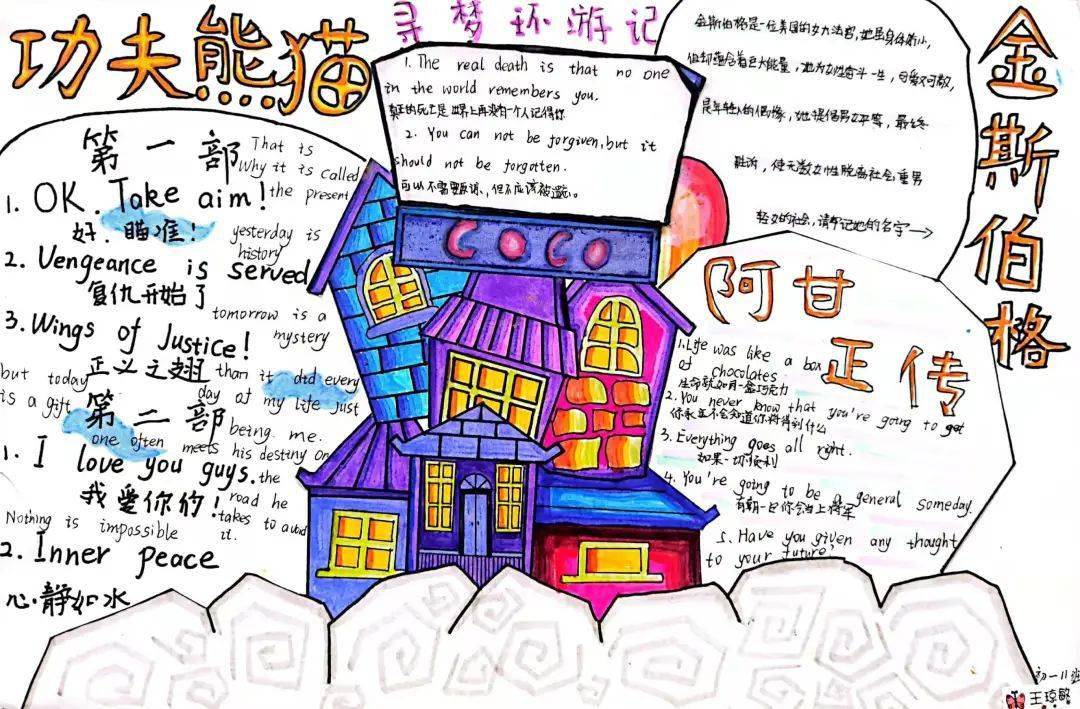 功夫熊猫
第一部
1. OK. Take aim!
好.瞄准!
2. Vengeance is served
复仇开始了
3. Wings of Justice!
正义之翅
第二部
1. I love you guys.
我爱你们!
2. Inner peace
心静如水
That is
Why it is called
the present
yesterday is
history
tomorrow is a
mystery
but today
is a gift
than it did every
day of my life just
being me.
one often meets his destiny on
the
road he
takes to avoid
it.
Nothing is impossible
寻梦环游记
1. The real death is that no one
in the world remembers you.
真正的死亡是世界上再没有一个人记得你
2. You can not be forgiven, but it
should not be forgotten.
可以不需要原谅,但不应该被遗忘。
COCO
金斯伯格
金斯伯格是一位美国的女大法官,她虽身体瘦小,
但却蕴含着巨大能量,她为女性奋斗一生,
是年轻人的偶像,她提倡男女平等,最终
胜诉,使无数女性脱离社会重男
轻女的社会,请牢记她的名字→
阿甘正传
1. Life was like a box
of chocolates.
生命就如同一盒巧克力
2. You never know that you're going to get
你永远不会知道你将得到什么
3. Everything goes all right.
如果一切顺利
4. You're going to be a general someday.
有朝一日你会当上将军
5. Have you given any thought
to your future?
初一11班
王琼